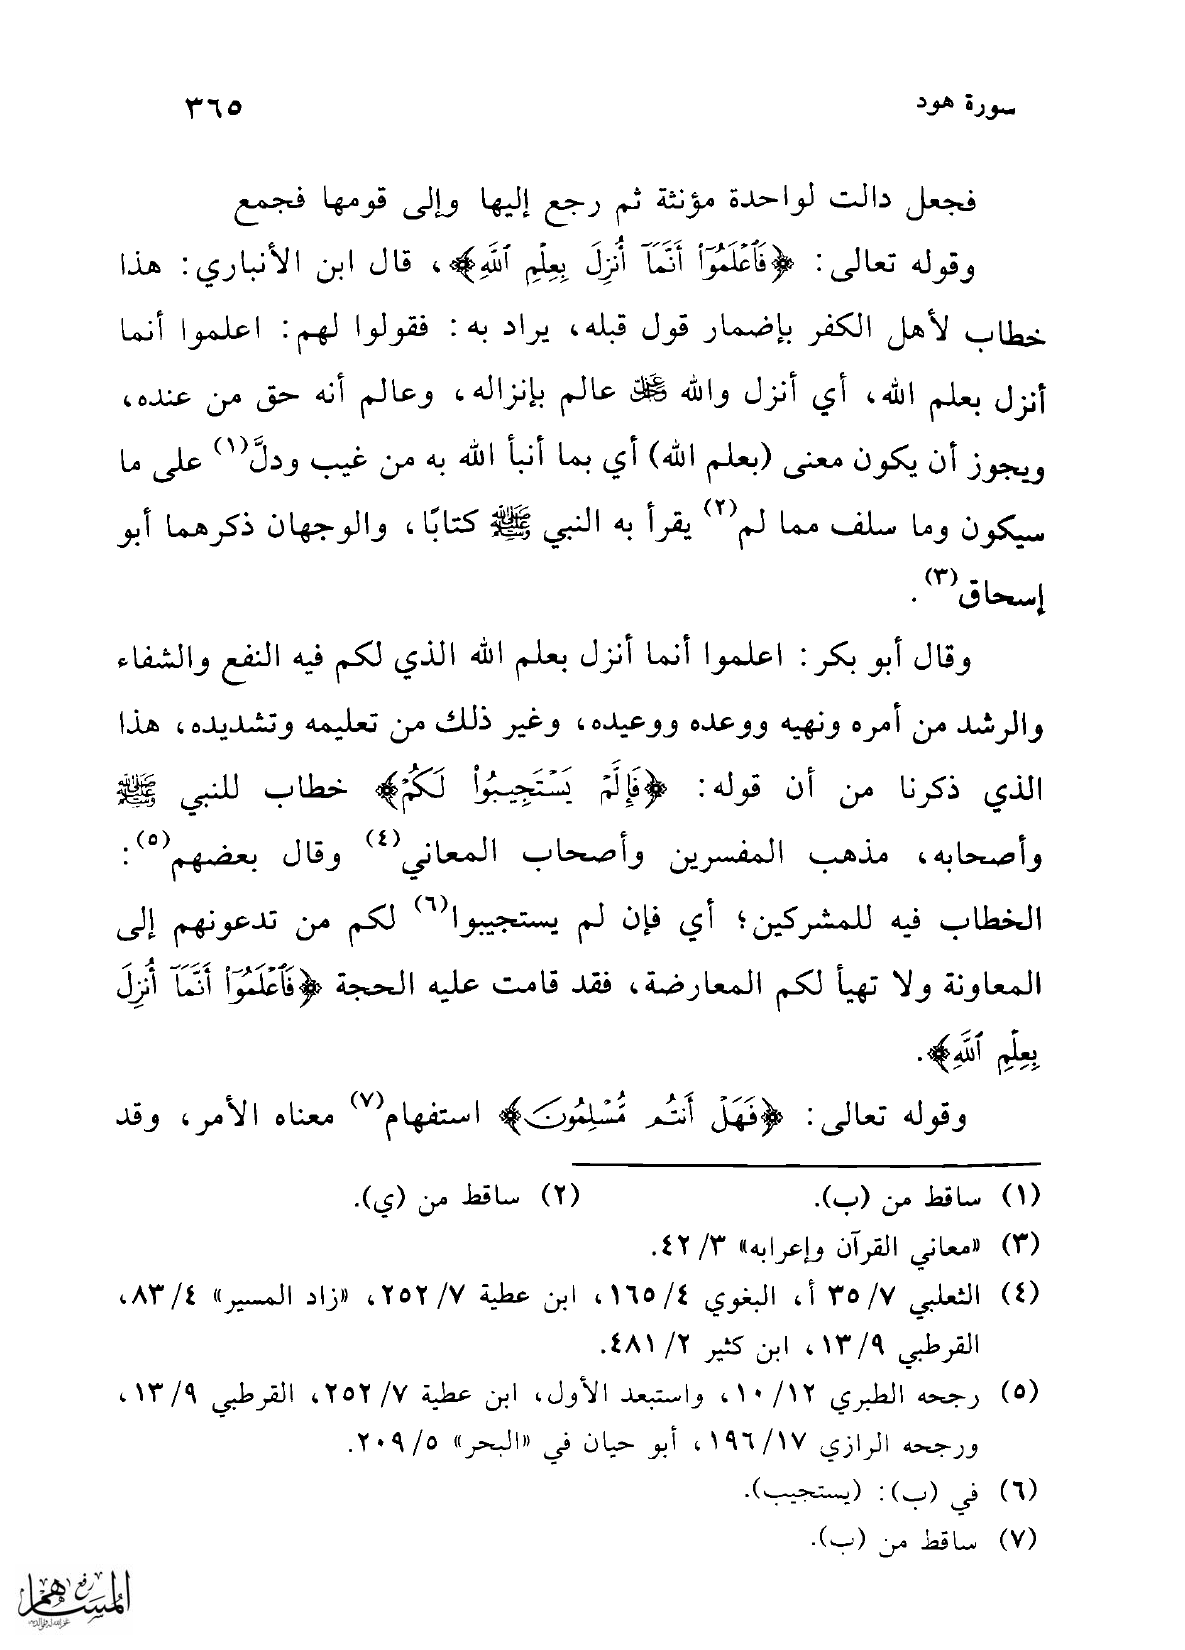 سورة هود
٣٦٥
فجعل دالت لواحدة مؤنثة ثم رجع إليها وإلى قومها فجمع
وقوله تعالى: ﴿فَٱعۡلَمُوٓاْ أَنَّمَآ أُنزِلَ بِعِلۡمِ ٱللَّهِ﴾، قال ابن الأنباري: هذا
خطاب لأهل الكفر بإضمار قول قبله، يراد به: فقولوا لهم: اعلموا أنما
أنزل بعلم الله، أي أنزل والله عَزَّ وَجَلَّ عالم بإنزاله، وعالم أنه حق من عنده،
ويجوز أن يكون معنى (بعلم الله) أي بما أنبأ الله به من غيب ودلَّ(١) على ما
سيكون وما سلف مما لم(٢) يقرأ به النبي ﷺ كتابًا، والوجهان ذكرهما أبو
إسحاق(٣).
وقال أبو بكر: اعلموا أنما أنزل بعلم الله الذي لكم فيه النفع والشفاء
والرشد من أمره ونهيه ووعده ووعيده، وغير ذلك من تعليمه وتشديده، هذا
الذي ذكرنا من أن قوله: ﴿فَإِلَّمۡ يَسۡتَجِيبُواْ لَكُمۡ﴾ خطاب للنبي ﷺ
وأصحابه، مذهب المفسرين وأصحاب المعاني(٤) وقال بعضهم(٥):
الخطاب فيه للمشركين؛ أي فإن لم يستجيبوا(٦) لكم من تدعونهم إلى
المعاونة ولا تهيأ لكم المعارضة، فقد قامت عليه الحجة ﴿فَٱعۡلَمُوٓاْ أَنَّمَآ أُنزِلَ
بِعِلۡمِ ٱللَّهِ﴾.
وقوله تعالى: ﴿فَهَلۡ أَنتُم مُّسۡلِمُونَ﴾ استفهام(٧) معناه الأمر، وقد
(١) ساقط من (ب). (٢) ساقط من (ي).
(٣) «معاني القرآن وإعرابه» ٣/ ٤٢.
(٤) الثعلبي ٧/ ٣٥ أ، البغوي ٤/ ١٦٥، ابن عطية ٧/ ٢٥٢، «زاد المسير» ٤/ ٨٣،
القرطبي ٩/ ١٣، ابن كثير ٢/ ٤٨١.
(٥) رجحه الطبري ١٢/ ١٠، واستبعد الأول، ابن عطية ٧/ ٢٥٢، القرطبي ٩/ ١٣،
ورجحه الرازي ١٧/ ١٩٦، أبو حيان في «البحر» ٥/ ٢٠٩.
(٦) في (ب): (يستجيب).
(٧) ساقط من (ب).